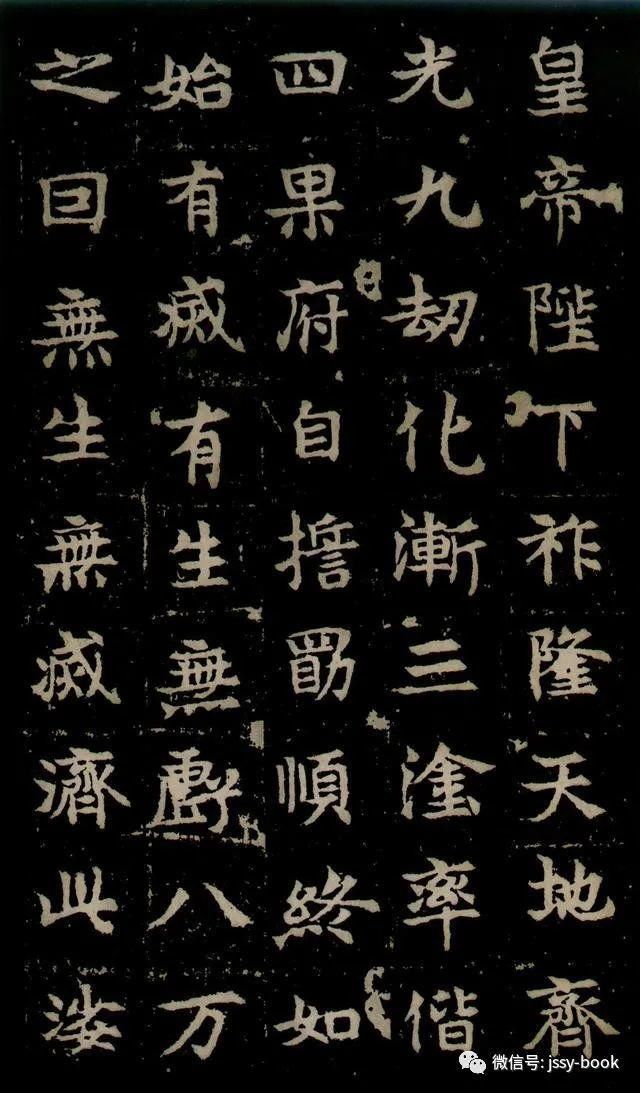 皇帝陛下祚隆天地齊
光九劫化漸三塗率偕
四果府自擔勖順終如
始有滅有生無虧八万
之囙無生無滅濟此
微信号: jssy-book